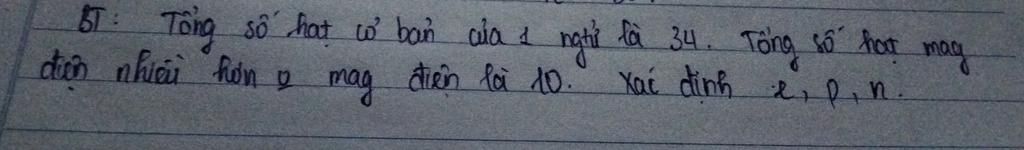 BT: Tổng số hạt cơ bản của 1 ngtử là 34. Tổng số hạt mag
điện nhiều hơn 0 mag điện là 10. Xác định e, p, n.